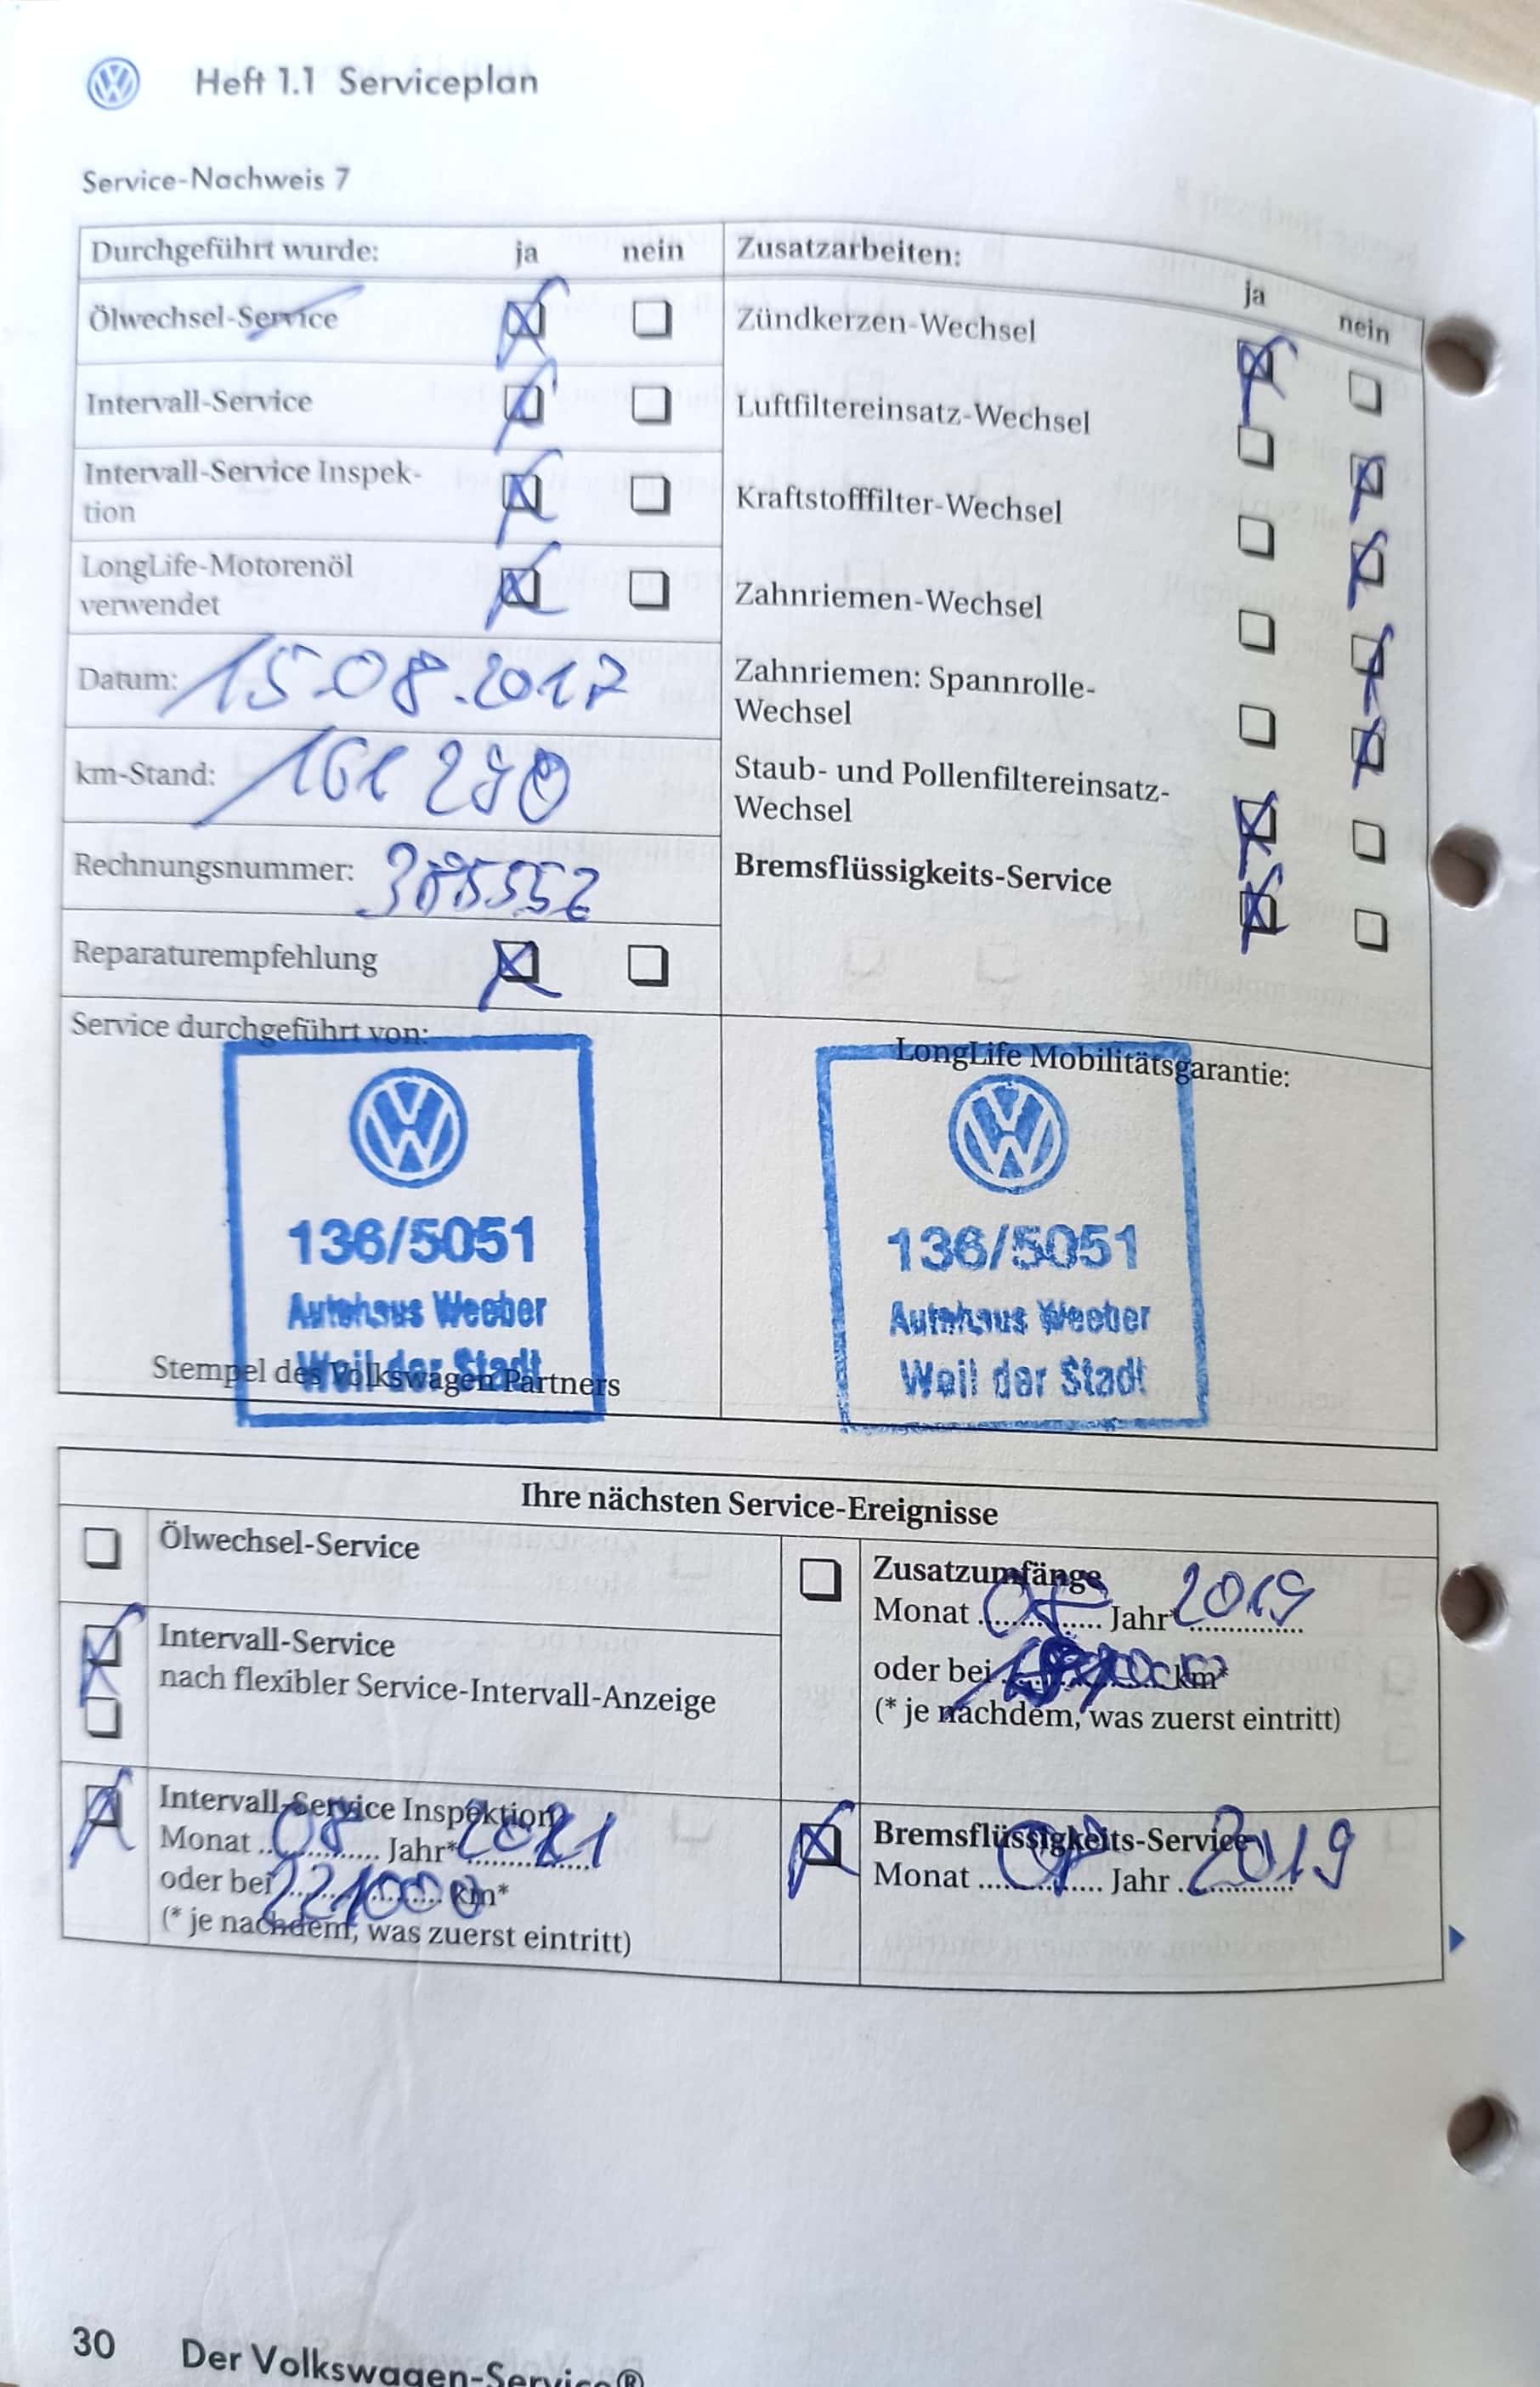 Heft 1.1 Serviceplan
Service-Nachweis 7
Durchgeführt wurde: ja nein
Ölwechsel-Service
Intervall-Service
Intervall-Service Inspek-
tion
LongLife-Motorenöl
verwendet
Datum: 15.08.2017
km-Stand: 161 290
Rechnungsnummer:
Reparaturempfehlung
Zusatzarbeiten: ja nein
Zündkerzen-Wechsel
Luftfiltereinsatz-Wechsel
Kraftstofffilter-Wechsel
Zahnriemen-Wechsel
Zahnriemen: Spannrolle-
Wechsel
Staub- und Pollenfiltereinsatz-
Wechsel
Bremsflüssigkeits-Service
Service durchgeführt von:
136/5051
Autohaus Weeber
Weil der Stadt
Stempel des Volkswagen Partners
LongLife Mobilitätsgarantie:
136/5051
Autohaus Weeber
Weil der Stadt
Ihre nächsten Service-Ereignisse
Ölwechsel-Service
Intervall-Service
nach flexibler Service-Intervall-Anzeige
Intervall-Service Inspektion
Monat 08 Jahr* 2021
oder bei 221000 km*
(* je nachdem, was zuerst eintritt)
Zusatzumfänge
Monat 08 Jahr* 2019
oder bei km*
(* je nachdem, was zuerst eintritt)
Bremsflüssigkeits-Service
Monat 08 Jahr 2019
30 Der Volkswagen-Service®